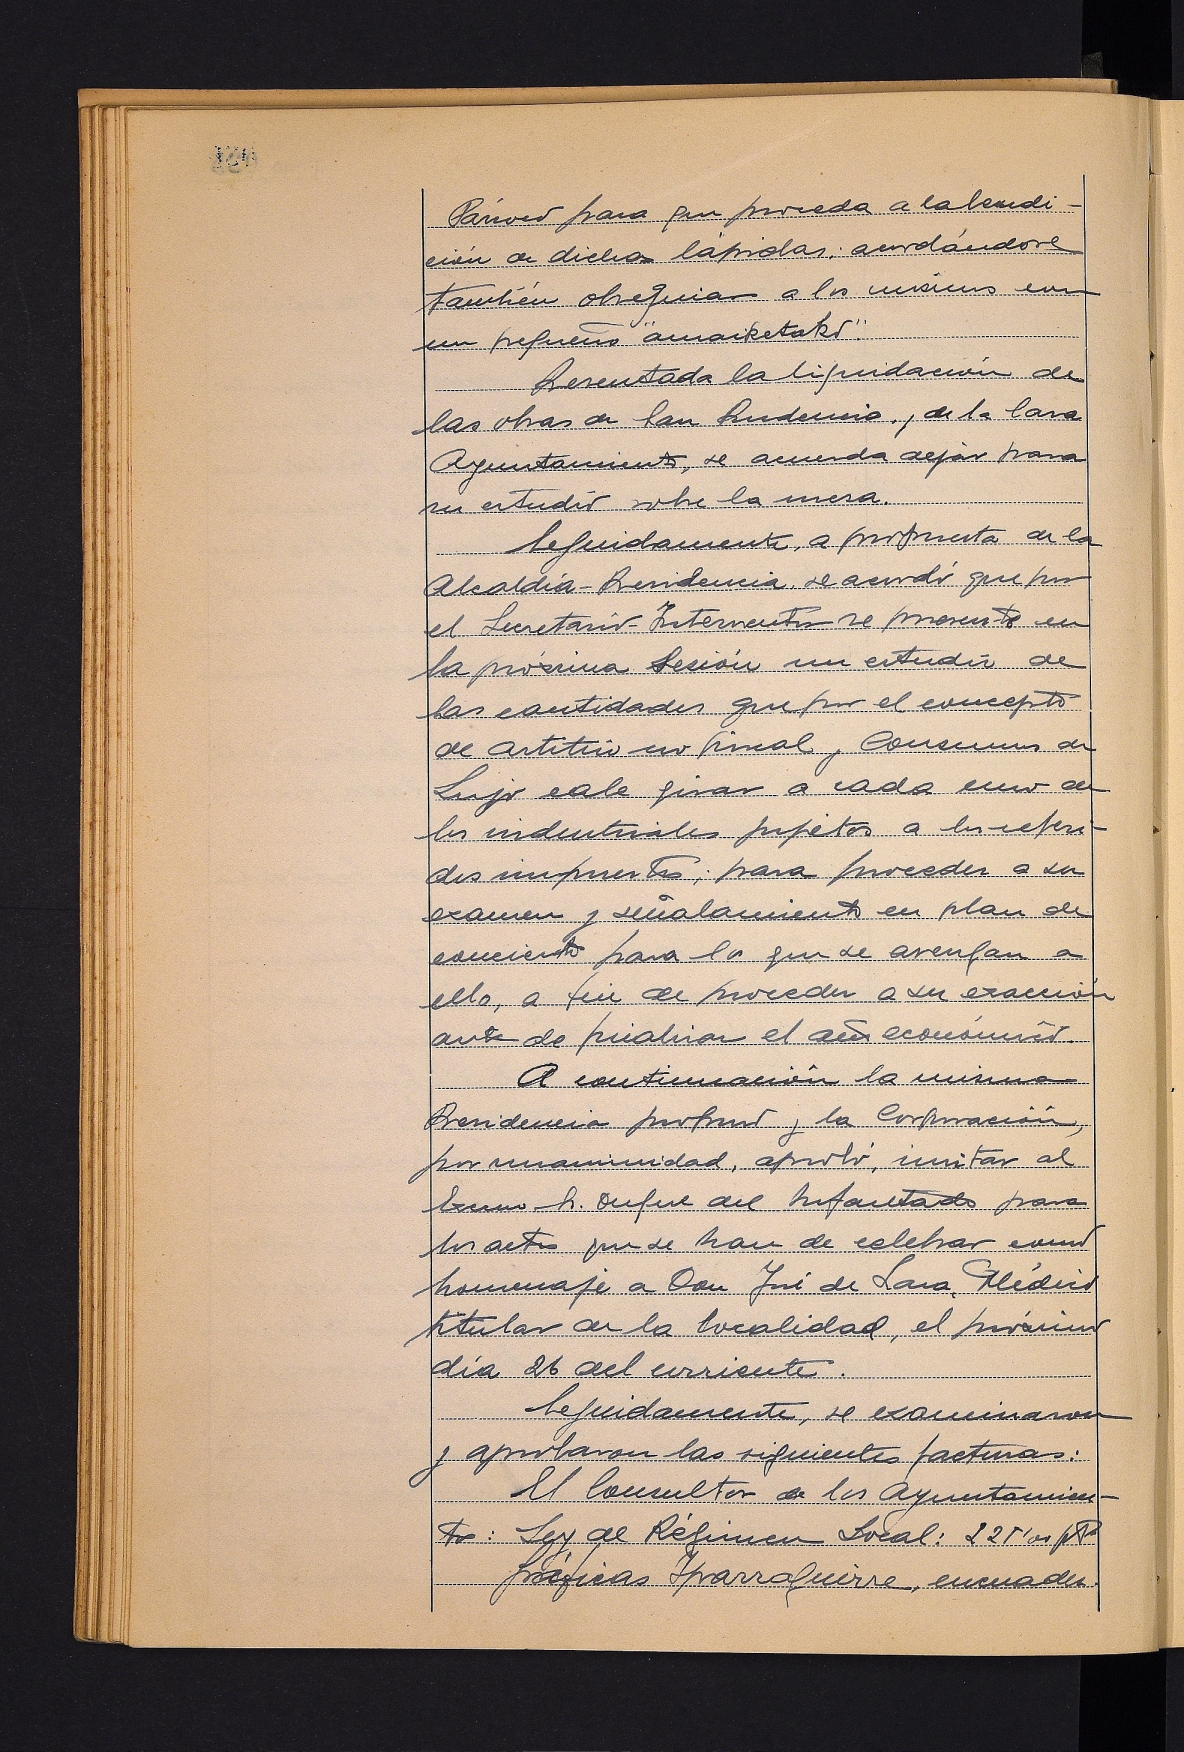 Párroco para que proceda a la bendi-
ción de dichas lápidas; acordándose
también obsequiar a los mismos con
un pequeño "amaiketako".
Presentada la liquidación de
las obras de San Prudencio, y de la Casa
Ayuntamiento, se acuerda dejar para
su estudio sobre la mesa.
Seguidamente, a propuesta de la
Alcaldía-Presidencia, se acordó que por
el Secretario-Interventor se presente en
la próxima Sesión un estudio de
las cantidades que por el concepto
de arbitrio no fiscal y Consumos de
Lujo cabe girar a cada uno de
los industriales sujetos a los referi-
dos impuestos; para proceder a su
examen y señalamiento en plan de
concierto para los que se avengan a
ello, a fin de proceder a su exacción
antes de finalizar el año económico.
A continuación la misma
Presidencia propuso y la Corporación,
por unanimidad, aprobó, invitar al
Excmo. Sr. Duque del Infantado para
los actos que se han de celebrar como
homenaje a Don José de Lara, Médico
titular de la localidad, el próximo
día 26 del corriente.
Seguidamente, se examinaron
y aprobaron las siguientes facturas:
El Consultor de los Ayuntamien-
tos: Ley de Régimen Local: pts
Gráficas Yparraguirre, encuader-